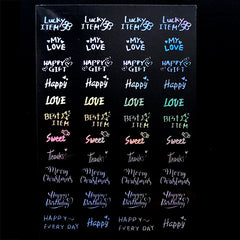 Lucky ITEM Lucky ITEM Lucky ITEM Lucky ITEM
MY LOVE MY LOVE MY LOVE MY LOVE
HAPPY GIFT HAPPY GIFT HAPPY GIFT HAPPY GIFT
Happy Happy Happy Happy
LOVE LOVE LOVE LOVE
BEST ITEM BEST ITEM BEST ITEM BEST ITEM
Sweet Sweet Sweet Sweet
Thanks Thanks Thanks Thanks
Merry Christmas Merry Christmas Merry Christmas Merry Christmas
Happy Birthday Happy Birthday Happy Birthday Happy Birthday
HAPPY EVERY DAY Happy HAPPY EVERY DAY Happy